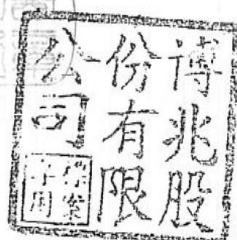 博兆股
份有限
公司